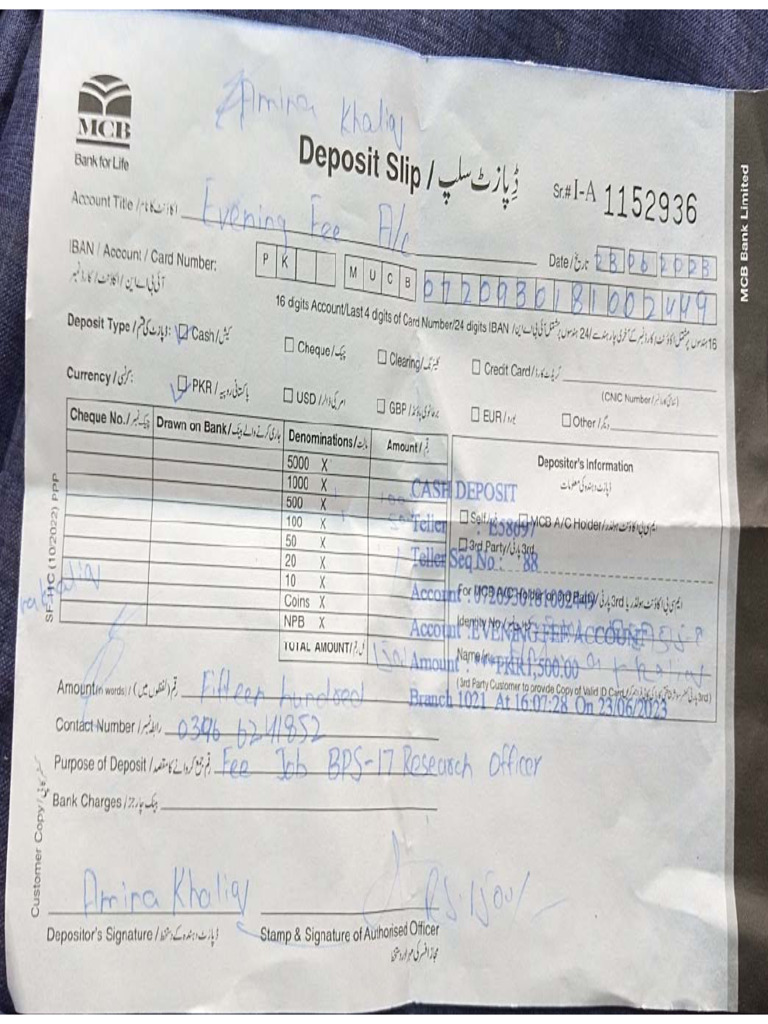 Amina Khaliq
MCB
Bank for Life
Deposit Slip / ڈپازٹ سلپ
Sr.# I-A 1152936
Account Title / اکاؤنٹ کا نام Evening Fee A/c
Date / تاریخ 23 06 2023
IBAN / Account / Card Number:
PK MUCB 0720930181002449
16 digits Account/Last 4 digits of Card Number/24 digits IBAN /
Deposit Type / ڈپازٹ کی قسم: Cash / کیش Cheque / چیک Clearing / کلیئرنگ Credit Card / کریڈٹ کارڈ
(CNIC Number /
Currency / کرنسی: PKR / پاکستانی روپیہ USD / امریکی ڈالر GBP / برطانوی پاؤنڈ EUR / یورو Other / دیگر
Cheque No. / چیک نمبر Drawn on Bank / Denominations / مالیت Amount / رقم
Depositor's Information
5000 X
1000 X
500 X
100 X
50 X
20 X
10 X
Coins X
NPB X
TOTAL AMOUNT /
CASH DEPOSIT
Self / MCB A/C Holder /
Teller : E58697
3rd Party /
Teller Seq No : 88
For MCB A/C Holder or 3rd Party /
Account : 0720930181002449
Identity No.
Account : EVENING FEE ACCOUNT
Name /
Amount : PKR1,500.00
(3rd Party Customer to provide Copy of Valid ID Card /
Branch 1021 At 16:07:28 On 23/06/2023
Amount (in words) / رقم (لفظوں میں) Fifteen hundred
Contact Number / رابطہ نمبر 0346 6241852
Purpose of Deposit / رقم جمع کروانے کا مقصد Fee Job BPS-17 Research Officer
Bank Charges / بینک چارجز
Amina Khaliq
Rs. 1500/-
Depositor's Signature / ڈپازٹ دہندہ کے دستخط
Stamp & Signature of Authorised Officer
مجاز افسر کی مہر اور دستخط
SF-HC (10/2022) PPP
Customer Copy /
MCB Bank Limited